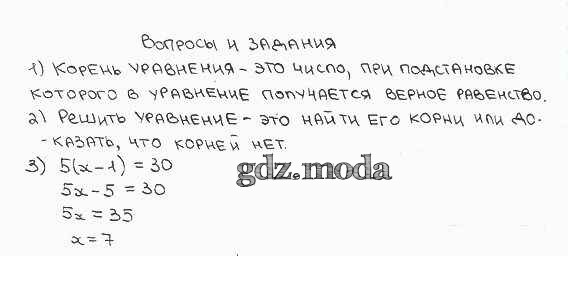 ВОПРОСЫ И ЗАДАНИЯ
1) КОРЕНЬ УРАВНЕНИЯ - ЭТО ЧИСЛО, ПРИ ПОДСТАНОВКЕ
КОТОРОГО В УРАВНЕНИЕ ПОЛУЧАЕТСЯ ВЕРНОЕ РАВЕНСТВО.
2) РЕШИТЬ УРАВНЕНИЕ - ЭТО НАЙТИ ЕГО КОРНИ ИЛИ ДО-
-КАЗАТЬ, ЧТО КОРНЕЙ НЕТ.
3) 5(x-1) = 30
gdz.moda
5x-5 = 30
5x = 35
x=7